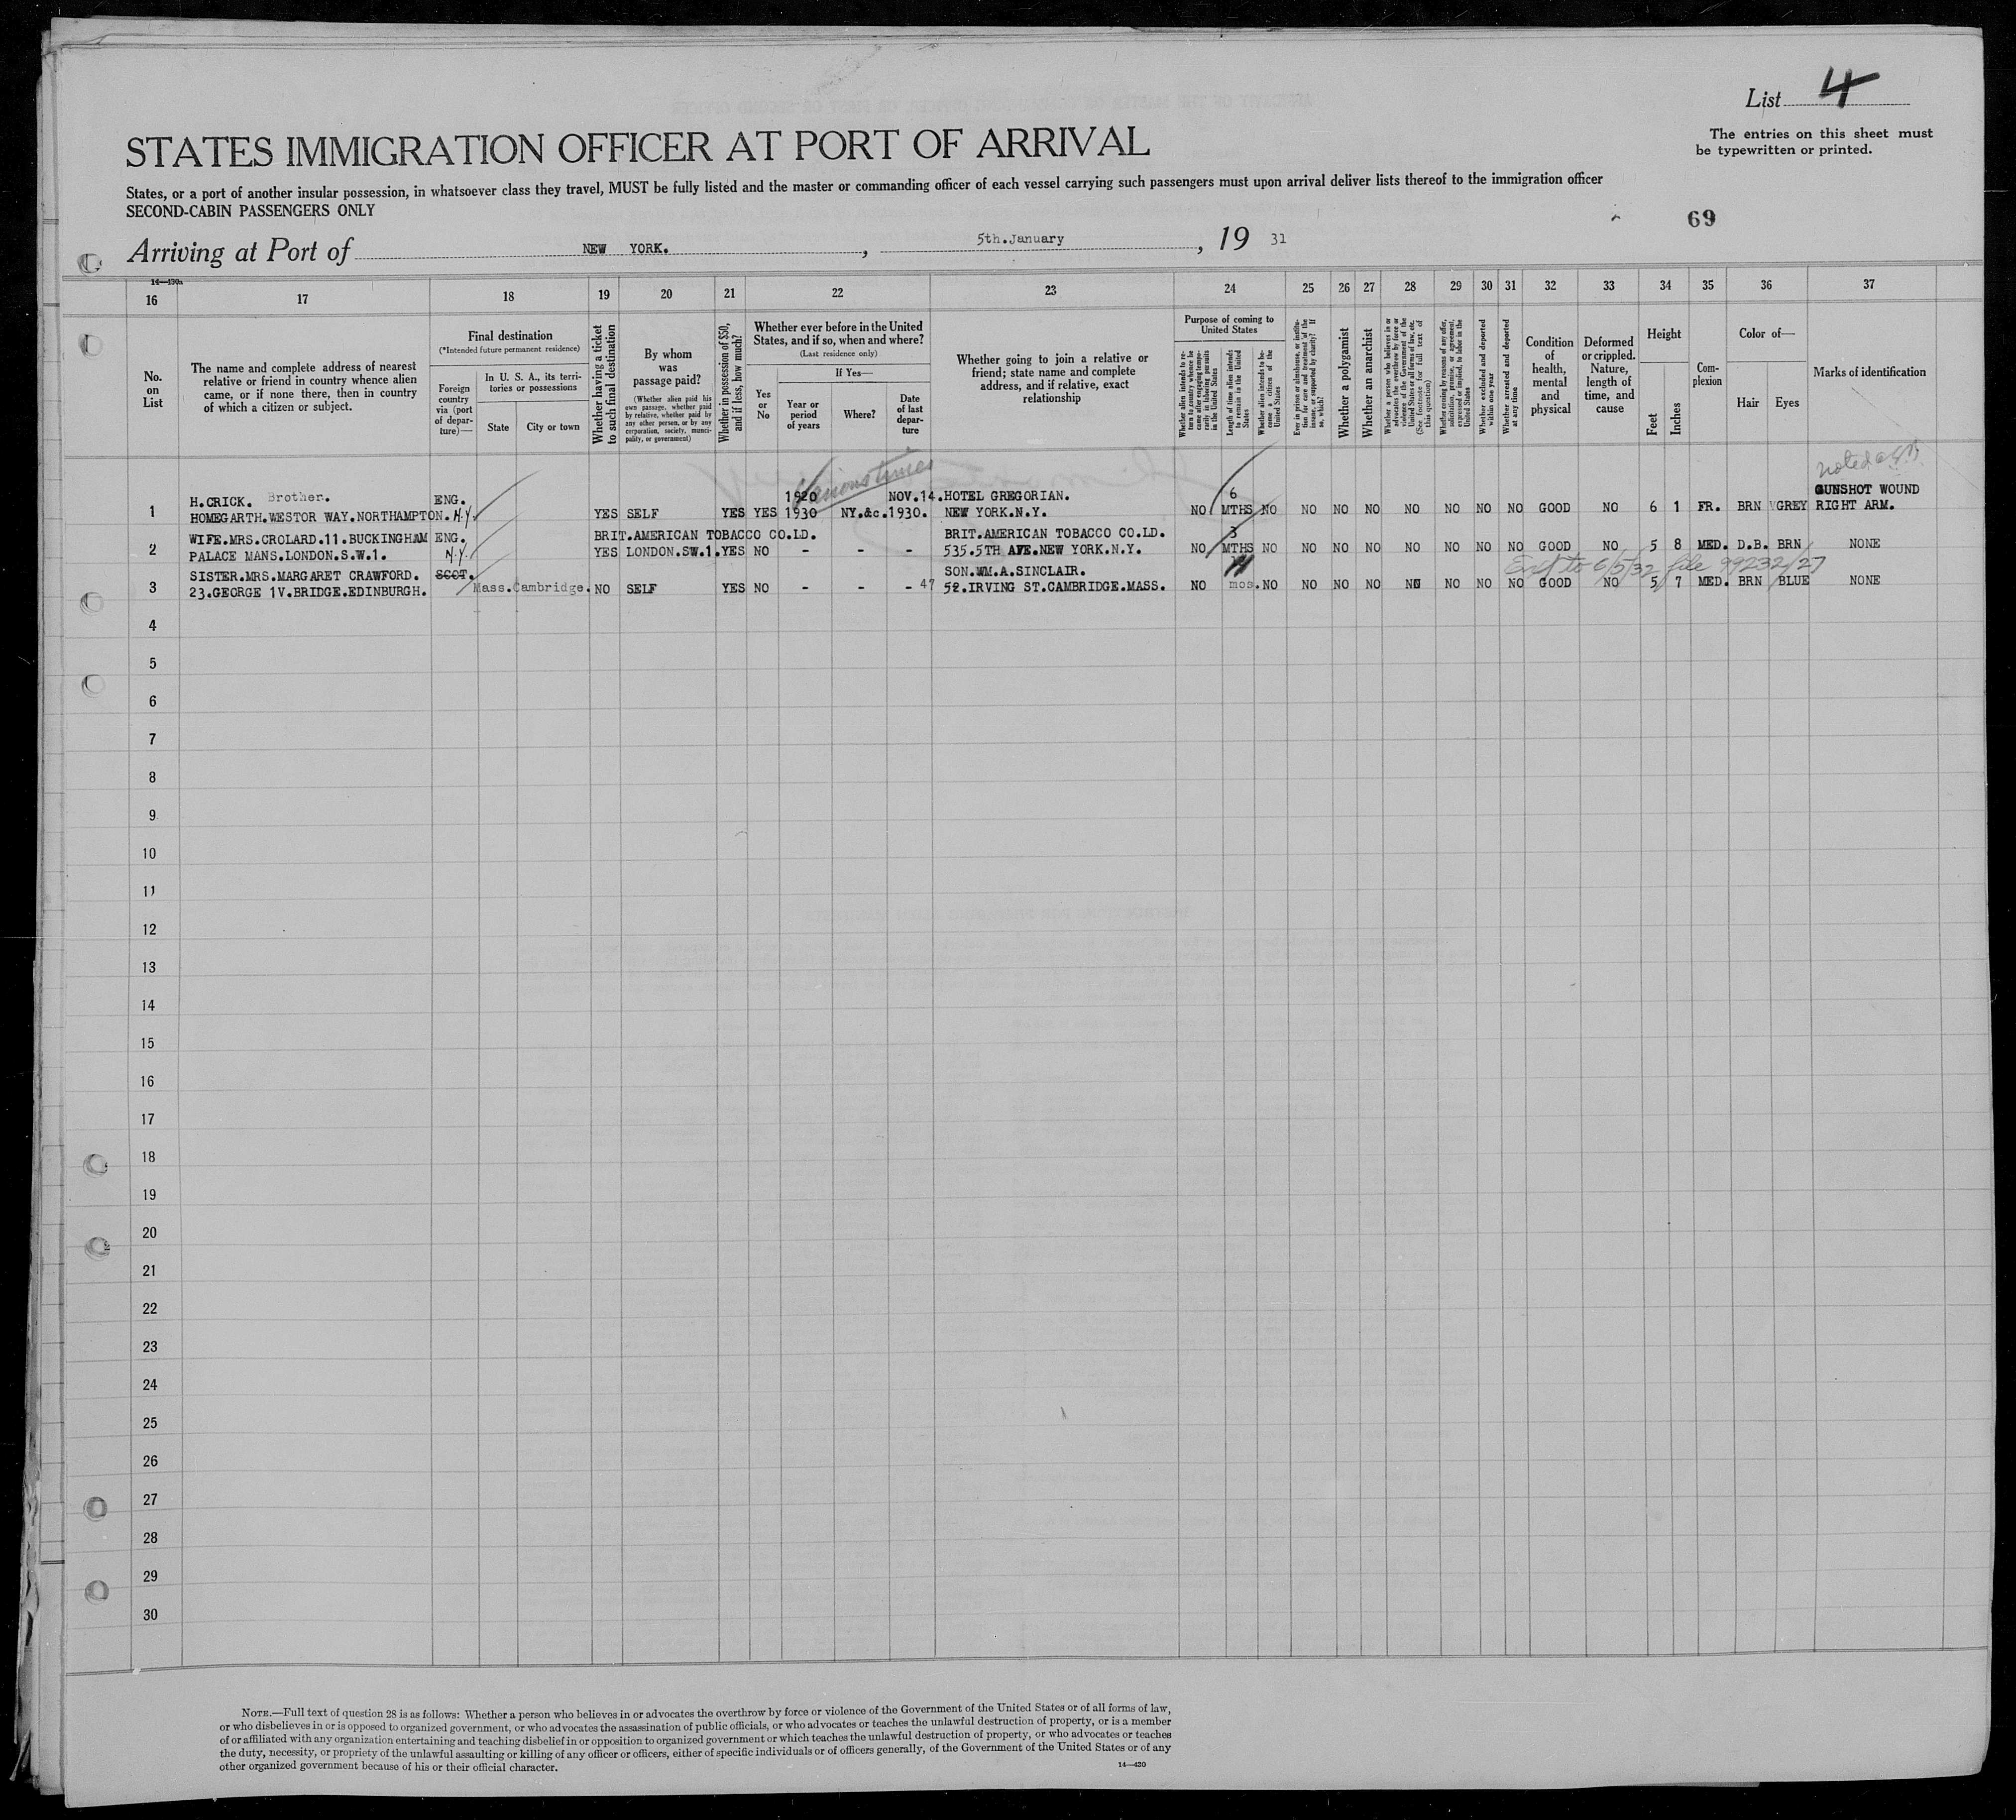 List 4
The entries on this sheet must
be typewritten or printed.
STATES IMMIGRATION OFFICER AT PORT OF ARRIVAL
States, or a port of another insular possession, in whatsoever class they travel, MUST be fully listed and the master or commanding officer of each vessel carrying such passengers must upon arrival deliver lists thereof to the immigration officer
SECOND-CABIN PASSENGERS ONLY
69
Arriving at Port of NEW YORK. , 5th.January , 19 31
14—430a
16 17 18 19 20 21 22 23 24 25 26 27 28 29 30 31 32 33 34 35 36 37
No.
on
List
The name and complete address of nearest
relative or friend in country whence alien
came, or if none there, then in country
of which a citizen or subject.
Final destination
(*Intended future permanent residence)
Foreign
country
via (port
of depar-
ture)—
In U. S. A., its terri-
tories or possessions
State City or town
Whether having a ticket
to such final destination
By whom
was
passage paid?
(Whether alien paid his
own passage, whether paid
by relative, whether paid by
any other person, or by any
corporation, society, munici-
pality, or government)
Whether in possession of $50,
and if less, how much?
Whether ever before in the United
States, and if so, when and where?
(Last residence only)
If Yes—
Yes
or
No
Year or
period
of years
Where?
Date
of last
depar-
ture
Whether going to join a relative or
friend; state name and complete
address, and if relative, exact
relationship
Purpose of coming to
United States
Whether alien intends to re-
turn to country whence he
came after engaging tempo-
rarily in laboring pursuits
in the United States
Length of time alien intends
to remain in the United
States
Whether alien intends to be-
come a citizen of the
United States
Ever in prison or almshouse, or institu-
tion for care and treatment of the
insane, or supported by charity? If
so, which?
Whether a polygamist
Whether an anarchist
Whether a person who believes in or
advocates the overthrow by force or
violence of the Government of the
United States or all forms of law, etc.
(See footnote for full text of
this question)
Whether coming by reason of any offer,
solicitation, promise, or agreement,
expressed or implied, to labor in the
United States
Whether excluded and deported
within one year
Whether arrested and deported
at any time
Condition
of
health,
mental
and
physical
Deformed
or crippled.
Nature,
length of
time, and
cause
Height
Feet Inches
Com-
plexion
Color of—
Hair Eyes
Marks of identification
Various times
noted
H.CRICK. Brother. ENG. 1920 NOV.14. HOTEL GREGORIAN. 6 GUNSHOT WOUND
1 HOMEGARTH.WESTOR WAY.NORTHAMPTON. N.Y. YES SELF YES YES 1930 NY.&c. 1930. NEW YORK.N.Y. NO MTHS NO NO NO NO NO NO NO NO GOOD NO 6 1 FR. BRN GREY RIGHT ARM.
WIFE.MRS.CROLARD.11.BUCKINGHAM ENG. BRIT.AMERICAN TOBACCO CO.LD. BRIT.AMERICAN TOBACCO CO.LD. 3
2 PALACE MANS.LONDON.S.W.1. N.Y. YES LONDON.SW.1. YES NO - - - 535.5TH AVE.NEW YORK.N.Y. NO MTHS NO NO NO NO NO NO NO NO GOOD NO 5 8 MED. D.B. BRN NONE
Ext to 6/5/32 file 99232/27
SISTER.MRS.MARGARET CRAWFORD. SCOT. SON.WM.A.SINCLAIR.
3 23.GEORGE 1V.BRIDGE.EDINBURGH. Mass. Cambridge. NO SELF YES NO - - - 47 52.IRVING ST.CAMBRIDGE.MASS. NO mos. NO NO NO NO NO NO NO NO GOOD NO 5 7 MED. BRN BLUE NONE
4
5
6
7
8
9
10
11
12
13
14
15
16
17
18
19
20
21
22
23
24
25
26
27
28
29
30
NOTE.—Full text of question 28 is as follows: Whether a person who believes in or advocates the overthrow by force or violence of the Government of the United States or of all forms of law,
or who disbelieves in or is opposed to organized government, or who advocates the assassination of public officials, or who advocates or teaches the unlawful destruction of property, or is a member
of or affiliated with any organization entertaining and teaching disbelief in or opposition to organized government or which teaches the unlawful destruction of property, or who advocates or teaches
the duty, necessity, or propriety of the unlawful assaulting or killing of any officer or officers, either of specific individuals or of officers generally, of the Government of the United States or of any
other organized government because of his or their official character.
14—430